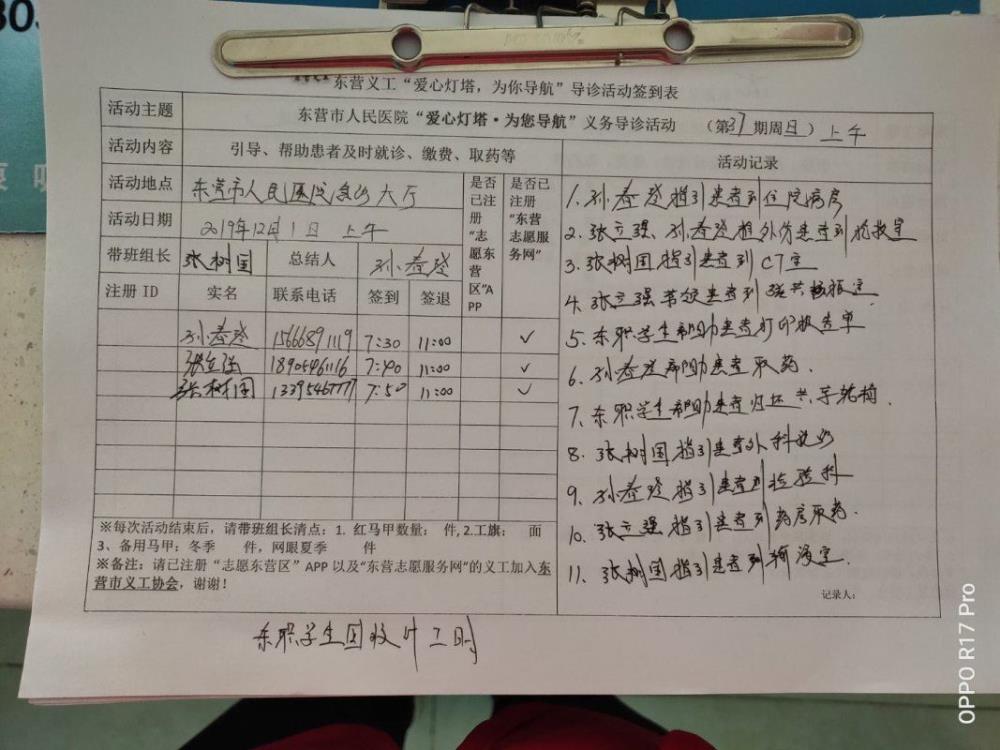 东营义工“爱心灯塔，为你导航”导诊活动签到表
活动主题 东营市人民医院“爱心灯塔·为您导航”义务导诊活动 （第37期周日）上午
活动内容 引导、帮助患者及时就诊、缴费、取药等 活动记录
活动地点 东营市人民医院急诊大厅
活动日期 2019年12月1日 上午
带班组长 张树国 总结人 孙春登
是否已注册“志愿东营区”APP
是否已注册“东营志愿服务网”
注册 ID 实名 联系电话 签到 签退
孙春登 15666891119 7:30 11:00 ✓
张立强 18905461116 7:40 11:00 ✓
张树国 13395467777 7:50 11:00 ✓
※每次活动结束后，请带班组长清点：1. 红马甲数量： 件,2.工旗： 面
3、备用马甲：冬季 件，网眼夏季 件
※备注：请已注册“志愿东营区”APP 以及“东营志愿服务网”的义工加入东
营市义工协会，谢谢！
1. 孙春登指引患者到住院病房
2. 张立强、孙春登推外伤患者到抢救室
3. 张树国指引患者到CT室
4. 张立强带领患者到磁共振室
5. 东职学生帮助患者打印报告单
6. 孙春登帮助患者取药.
7. 东职学生帮助患者归还共享轮椅.
8. 张树国指引患者外科就诊
9. 孙春登指引患者到检验科
10. 张立强指引患者到药房取药.
11. 张树国指引患者到输液室.
记录人：
东职学生回校计工时
OPPO R17 Pro